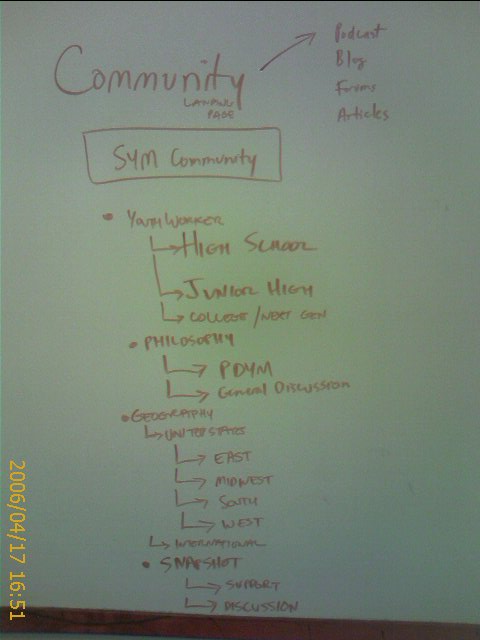 Community
LANDING
PAGE
Podcast
Blog
Forums
Articles
SYM Community
• YOUTH WORKER
HIGH SCHOOL
JUNIOR HIGH
COLLEGE / NEXT GEN
• PHILOSOPHY
PDYM
General Discussion
• GEOGRAPHY
UNITED STATES
EAST
MIDWEST
SOUTH
WEST
INTERNATIONAL
• SNAPSHOT
SUPPORT
DISCUSSION
2006/04/17 16:51